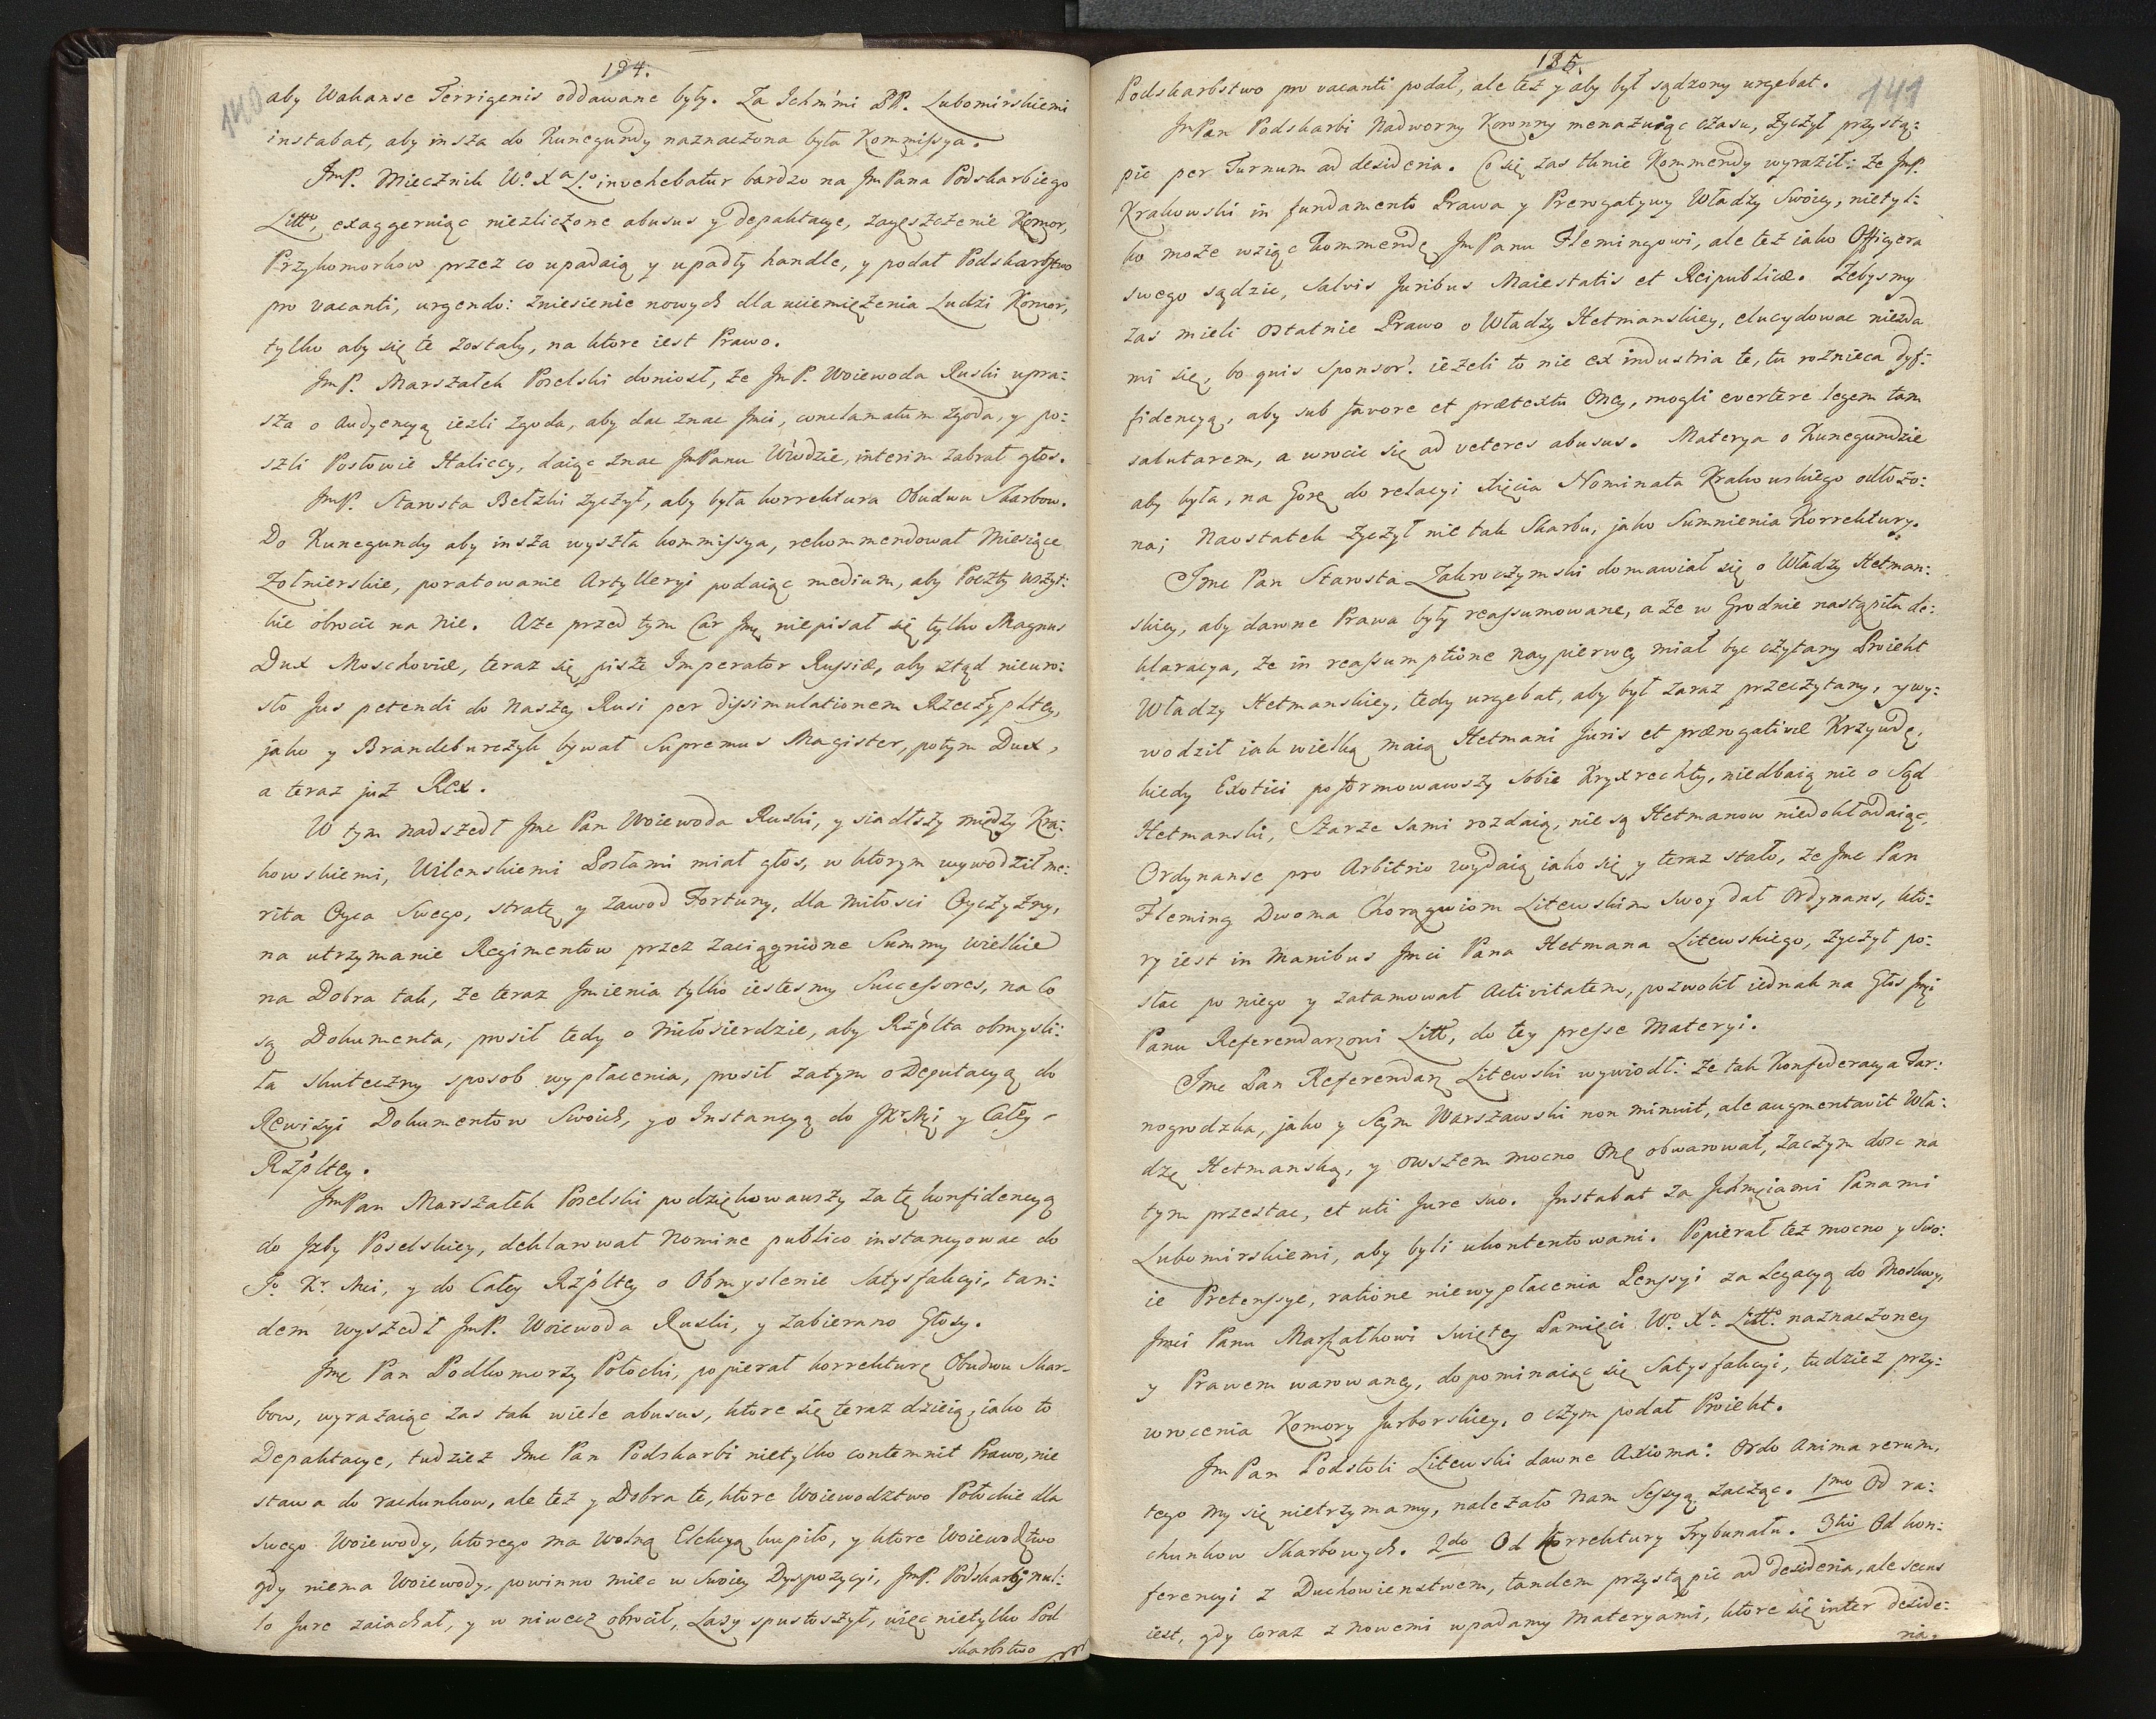 134.
140
aby Wakanse Terrigenis oddawane były. Za Ichm'mi PP. Lubomirskiemi
instabat, aby insza do Kunegundy naznaczona była Kommissya.
JmP. Miecznik W.º X.ª L.º invehebatur bardzo na JmPana Podskarbiego
Litt.º, exaggeruiąc niezliczone abusus y depaktacye, zagęszczenie Komor,
Przykomorkow przez co upadaią y upadły handle, y podał Podskarbstwo
pro vacanti, urgendo: zniesienie nowych dla uciemiężenia Ludzi Komor,
tylko aby się te zostały, na ktore iest Prawo.
JmP. Marszałek Poselski doniosł, że JmP. Woiewoda Ruski upra:
sza o Audyencyą iezli zgoda, aby dac znac Jmci, conclamatum zgoda, y po:
szli Posłowie Haliccy, daiąc znac JmPanu W'wodzie, interim zabrał głos.
JmP. Starosta Bełzki życzył, aby była korrektura Obudwu Skarbow.
Do Kunegundy aby insza wyszła kommissya, rekommendował Miesiące
Zołnierskie, poratowanie Artylleryi podaiąc medium, aby Poczty wszyt:
kie obrocić na nie. Aże przed tym Car Jmę niepisał się tylko Magnus
Dux Moschoviæ, teraz się pisze Imperator Russiæ, aby ztąd nieuro:
sło Jus petendi do Naszey Rusi per dissimulationem Rzeczypltey,
jako y Brandeburczyk bywał Supremus Magister, potym Dux,
a teraz już Rex.
W tym nadszedł Jmc Pan Woiewoda Ruski, y siadłszy między Kra:
kowskiemi, Wilenskiemi Posłami miał głos, w ktorym wywodził me:
rita Oyca Swego, stratę y zawod Fortuny, dla miłosci Oyczyzny,
na utrzymanie Regimentow przez zaciągnione Summy wielkie
na Dobra tak, że teraz Jmienia tylko iestesmy Successores, na co
są Dokumenta, prosił tedy o miłosierdzie, aby Rz'plta obmysli:
ła skuteczny sposob wypłacenia, prosił zatym o Deputacyą do
Rewizyi Dokumentow Swoich, y o Instancyą do JKrMci y Całey
Rz'pltey.
JmPan Marszałek Poselski podziękowawszy za tę konfidencyą
do Jzby Poselskiey, deklarował Nomine publico instancyowac do
J.º Kr. Mci, y do Całey Rz'pltey o Obmyslenie Satysfakcyi, tan:
dem wyszedł JmP. Woiewoda Ruski, y zabierano Głosy.
Jmę Pan Podkomorzy Połocki, popierał korrekturę Obudwu Skar-
bow, wyrażaiąc zas tak wiele abusus, ktore się teraz dzieią, iako to
Depaktacye, tudzież Jmc Pan Podskarbi nietylko contemnit Prawo, nie
stawa do rachunkow, ale też y Dobra te, ktore Woiewodztwo Połockie dla
swego Woiewody, ktorego ma wolną Elekcyą kupiło, y ktore Woiewodztwo
gdy niema Woiewody, powinno miec w Swoiey Dyspozycyi, JmP. Podskarbi nul:
lo Jure zaiachał, y w niwecz obrocił, Lasy spustoszył, więc nietylko Pod
skarbstwo
135.
141
Podskarbstwo pro vacanti podał, ale też y aby był sądzony urgebat.
JmPan Podskarbi Nadworny Koronny menażuiąc czasu, życzył przystą:
pić per Turnum ad desideria. Co się zas tknie Kommendy wyraził: że JmP.
Krakowski in fundamento Prawa y Prerogatywy Władzy Swoiey, nietyl:
ko może wziąc Kommendę JmPanu Flemingowi, ale też iako Officyera
swego sądzic, salvis Juribus Maiestatis et Reipublicæ. Żebysmy
zas mieli ostatnie Prawo o Władzy Hetmanskiey, elucydowac niezda
mi się, bo quis Sponsor? ieżeli to nie ex industria te, tu roznieca dyf:
fidencyą, aby sub favore et prætextu Oney, mogli evertere legem tam
salutarem, a wrocic się ad veteres abusus. Materya o Kunegundzie
aby była, na Gorę do relacyi Xięcia Nominata Krakowskiego odłożo:
na; Naostatek życzył nie tak Skarbu, jako Sumnienia Korrektury.
Jmc Pan Starosta Zakroczymski domawiał się o Władzy Hetman:
skiey, aby dawne Prawa były reassumowane, a że w Grodnie nastąpiła de:
klaracya, że in reassumptione naypierwey miał byc czytany Proiekt
Władzy Hetmanskiey, tedy urgebat, aby był zaraz przeczytany, y wy:
wodził iak wielką maią Hetmani Juris et prærogativæ Krzywdę,
kiedy Exotici poformowawszy sobie Kryxrechty, niedbaią nic o Sąd
Hetmanski, Szarże sami rozdaią, nie są Hetmanow niedokładaiąc,
Ordynanse pro Arbitrio wydaią iako się y teraz stało, że Jmc Pan
Fleming Dwoma Chorągwiom Litewskim swoy dał Ordynans, kto:
ry iest in Manibus Jmci Pana Hetmana Litewskiego, życzył po:
słac po niego y zatamował Activitatem, pozwolił iednak na Głos Jmci
Panu Referendarzowi Litt.º, do tey presse Materyi.
Jmc Pan Referendarz Litewski wywiodł: że tak Konfederacya Tar:
nogrodzka, jako y Seym Warszawski non minuit, ale augmentavit Wła:
dzę Hetmanską, y owszem mocno Onę obwarował, zaczym dosc na
tym przestac, et uti Jure suo. Instabat za Jchmciami Panami
Lubomirskiemi, aby byli ukontentowani. Popierał też mocno y Swo:
ie Pretensye, ratione niewypłacenia Pensyi za Legacyą do Moskwy,
Jmci Panu Marszałkowi Swiętey Pamięci W.º X.ª Litt.º naznaczoney
y Prawem warowaney, dopominaiąc się Satysfakcyi, tudzież przy:
wrocenia Komory Jurborskiey, o czym podał Proiekt.
JmPan Podstoli Litewski dawne Axioma: Ordo Anima rerum,
tego my się nietrzymamy, należało nam Sessyą zacząc. 1mo Od ra:
chunkow Skarbowych. 2do Od Korrektury Trybunału. 3tio Od kon:
ferencyi z Duchowienstwem, tandem przystąpic ad desideria, ale secus
iest, gdy coraz z nowemi wpadamy Materyami, ktore się inter deside:
ria.